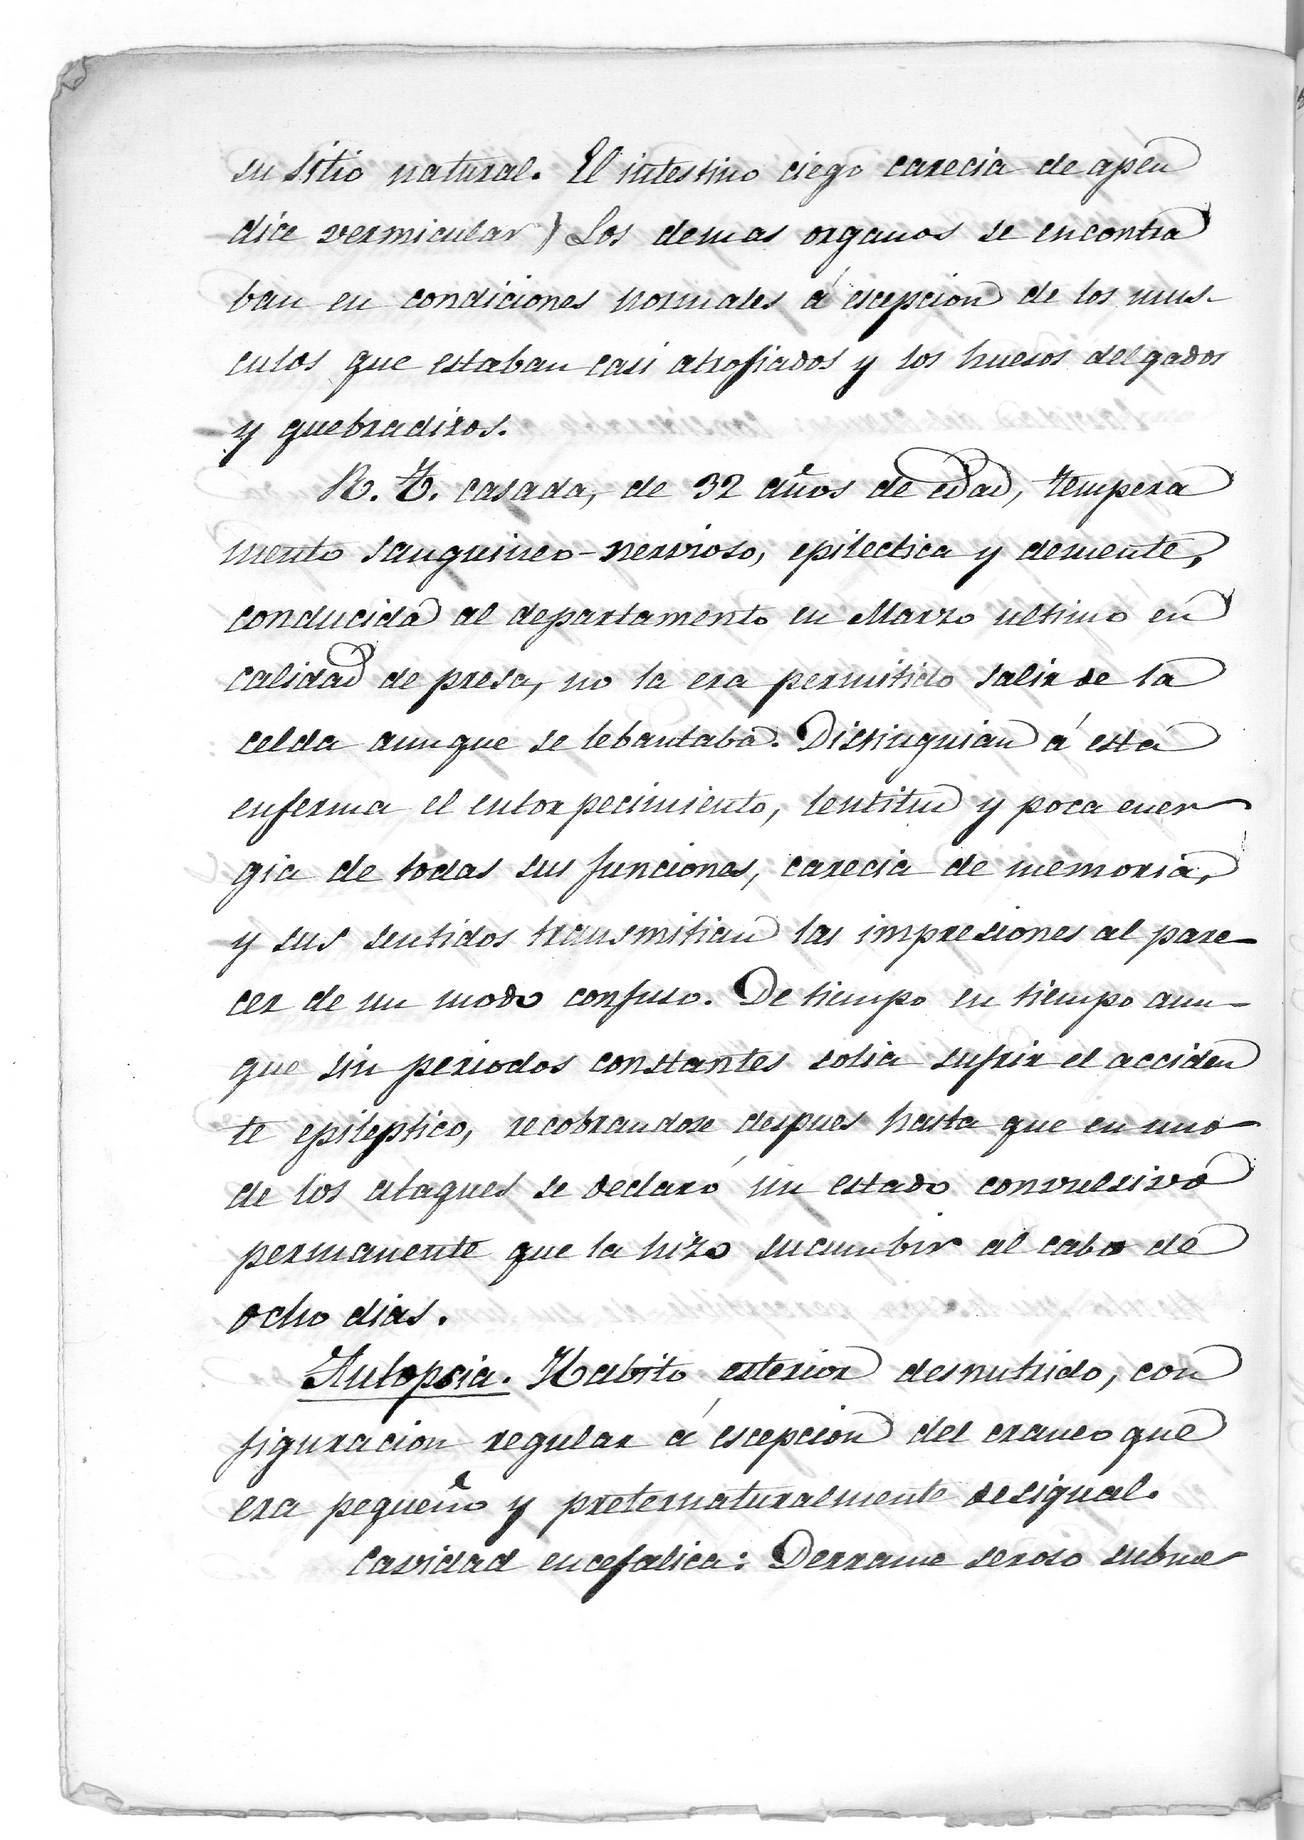 su sitio natural. El intestino ciego carecia de apen
dice vermicular) Los demas organos se encontra
ban en condiciones normales á escepcion de los mus-
culos que estaban casi atrofiados y los huesos delgados
y quebradizos.
R. T. casada, de 32 años de edad, tempera
mento sanguineo-nervioso, epilectica y demente,
conducida al departamento en Marzo ultimo en
calidad de presa, no la era permitido salir de la
celda aunque se lebantaba. Distinguian á esta
enferma el entorpecimiento, lentitud y poca ener
gia de todas sus funciones, carecia de memoria,
y sus sentidos transmitian las impresiones al pare-
cer de un modo confuso. De tiempo en tiempo aun-
que sin periodos constantes solia sufrir el acciden
te epileptico, recobrandose despues hasta que en uno
de los ataques se declaró un estado convulsivo
permanente que la hizo sucumbir al cabo de
ocho dias.
Autopsia. Habito esterior desnutrido, con
figuracion regular á escepcion del craneo que
era pequeño y preternaturalmente desigual.
Cavidad encefalica: Derrame seroso subme